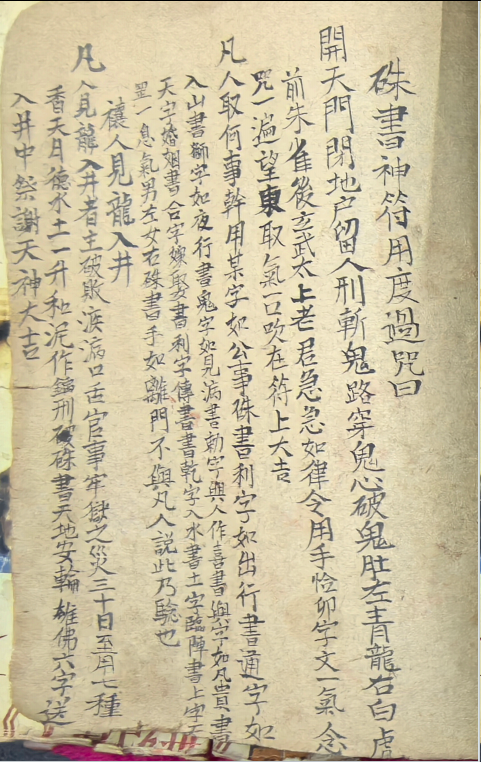 硃書神符用度過咒曰
開天門閉地户留人刑斬鬼路穿鬼心破鬼肚左青龍右白虎
前朱雀後玄武太上老君急急如律令用手恰卯字文一氣念
咒一遍望東取氣一口吹在符上大吉
凡人取何事幹用某字如公事硃書利字如出行書通字如
入山書獅字如夜行書鬼字如見病書勅字與人作喜書與字如凡貴書
天字婚姻書合字嫁娶書利字傳書書乾字入水書土字臨陣書上字天
罡一息氣男左女右硃書手如離門不與凡人説此乃驗也
禳人見龍入井
凡人見龍入井者主破敗疾病口舌官事牢獄之災三十日至百日七種
香天月德水土一升和泥作龍刑破硃書天地安輪雄佛六字送
入井中祭謝天神大吉